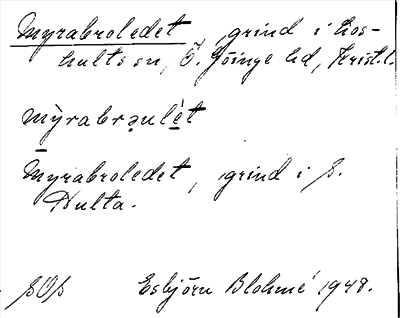 Myrabroledet, grind i Los-
hults sn, Ö. Göinge hd, Krist. l.
mỳrabrəulét
Myrabroledet, grind i S.
Hulta.
SOS Esbjörn Blohmé 1948.